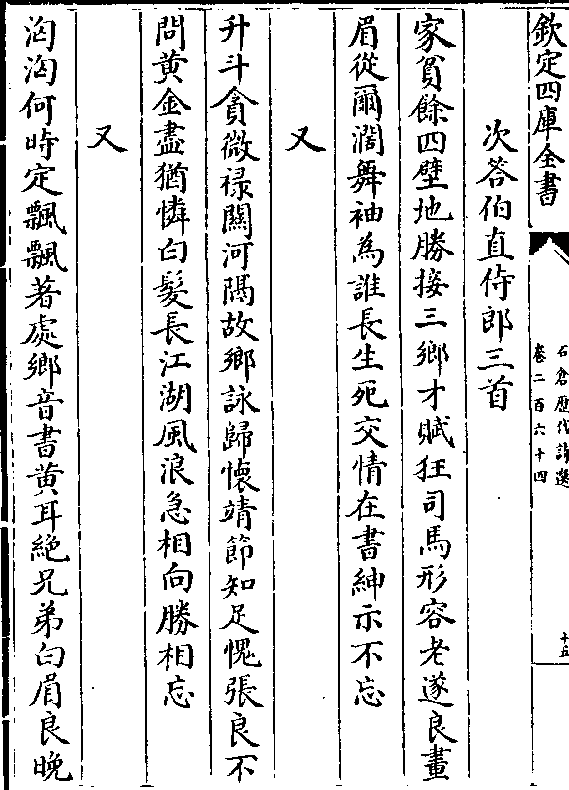 欽定四庫全書
石倉歷代詩選
卷二百六十四
十五
次答伯直侍郎三首
家貧餘四壁地勝接三鄉才賦狂司馬形容老遂良畫
眉從爾濶舞袖為誰長生死交情在書紳示不忘
又
升斗貪微禄關河隔故鄉詠歸懷靖節知足愧張良不
問黄金盡猶憐白髮長江湖風浪急相向勝相忘
又
洶洶何時定飄飄著處鄉音書黄耳絶兄弟白眉良晚